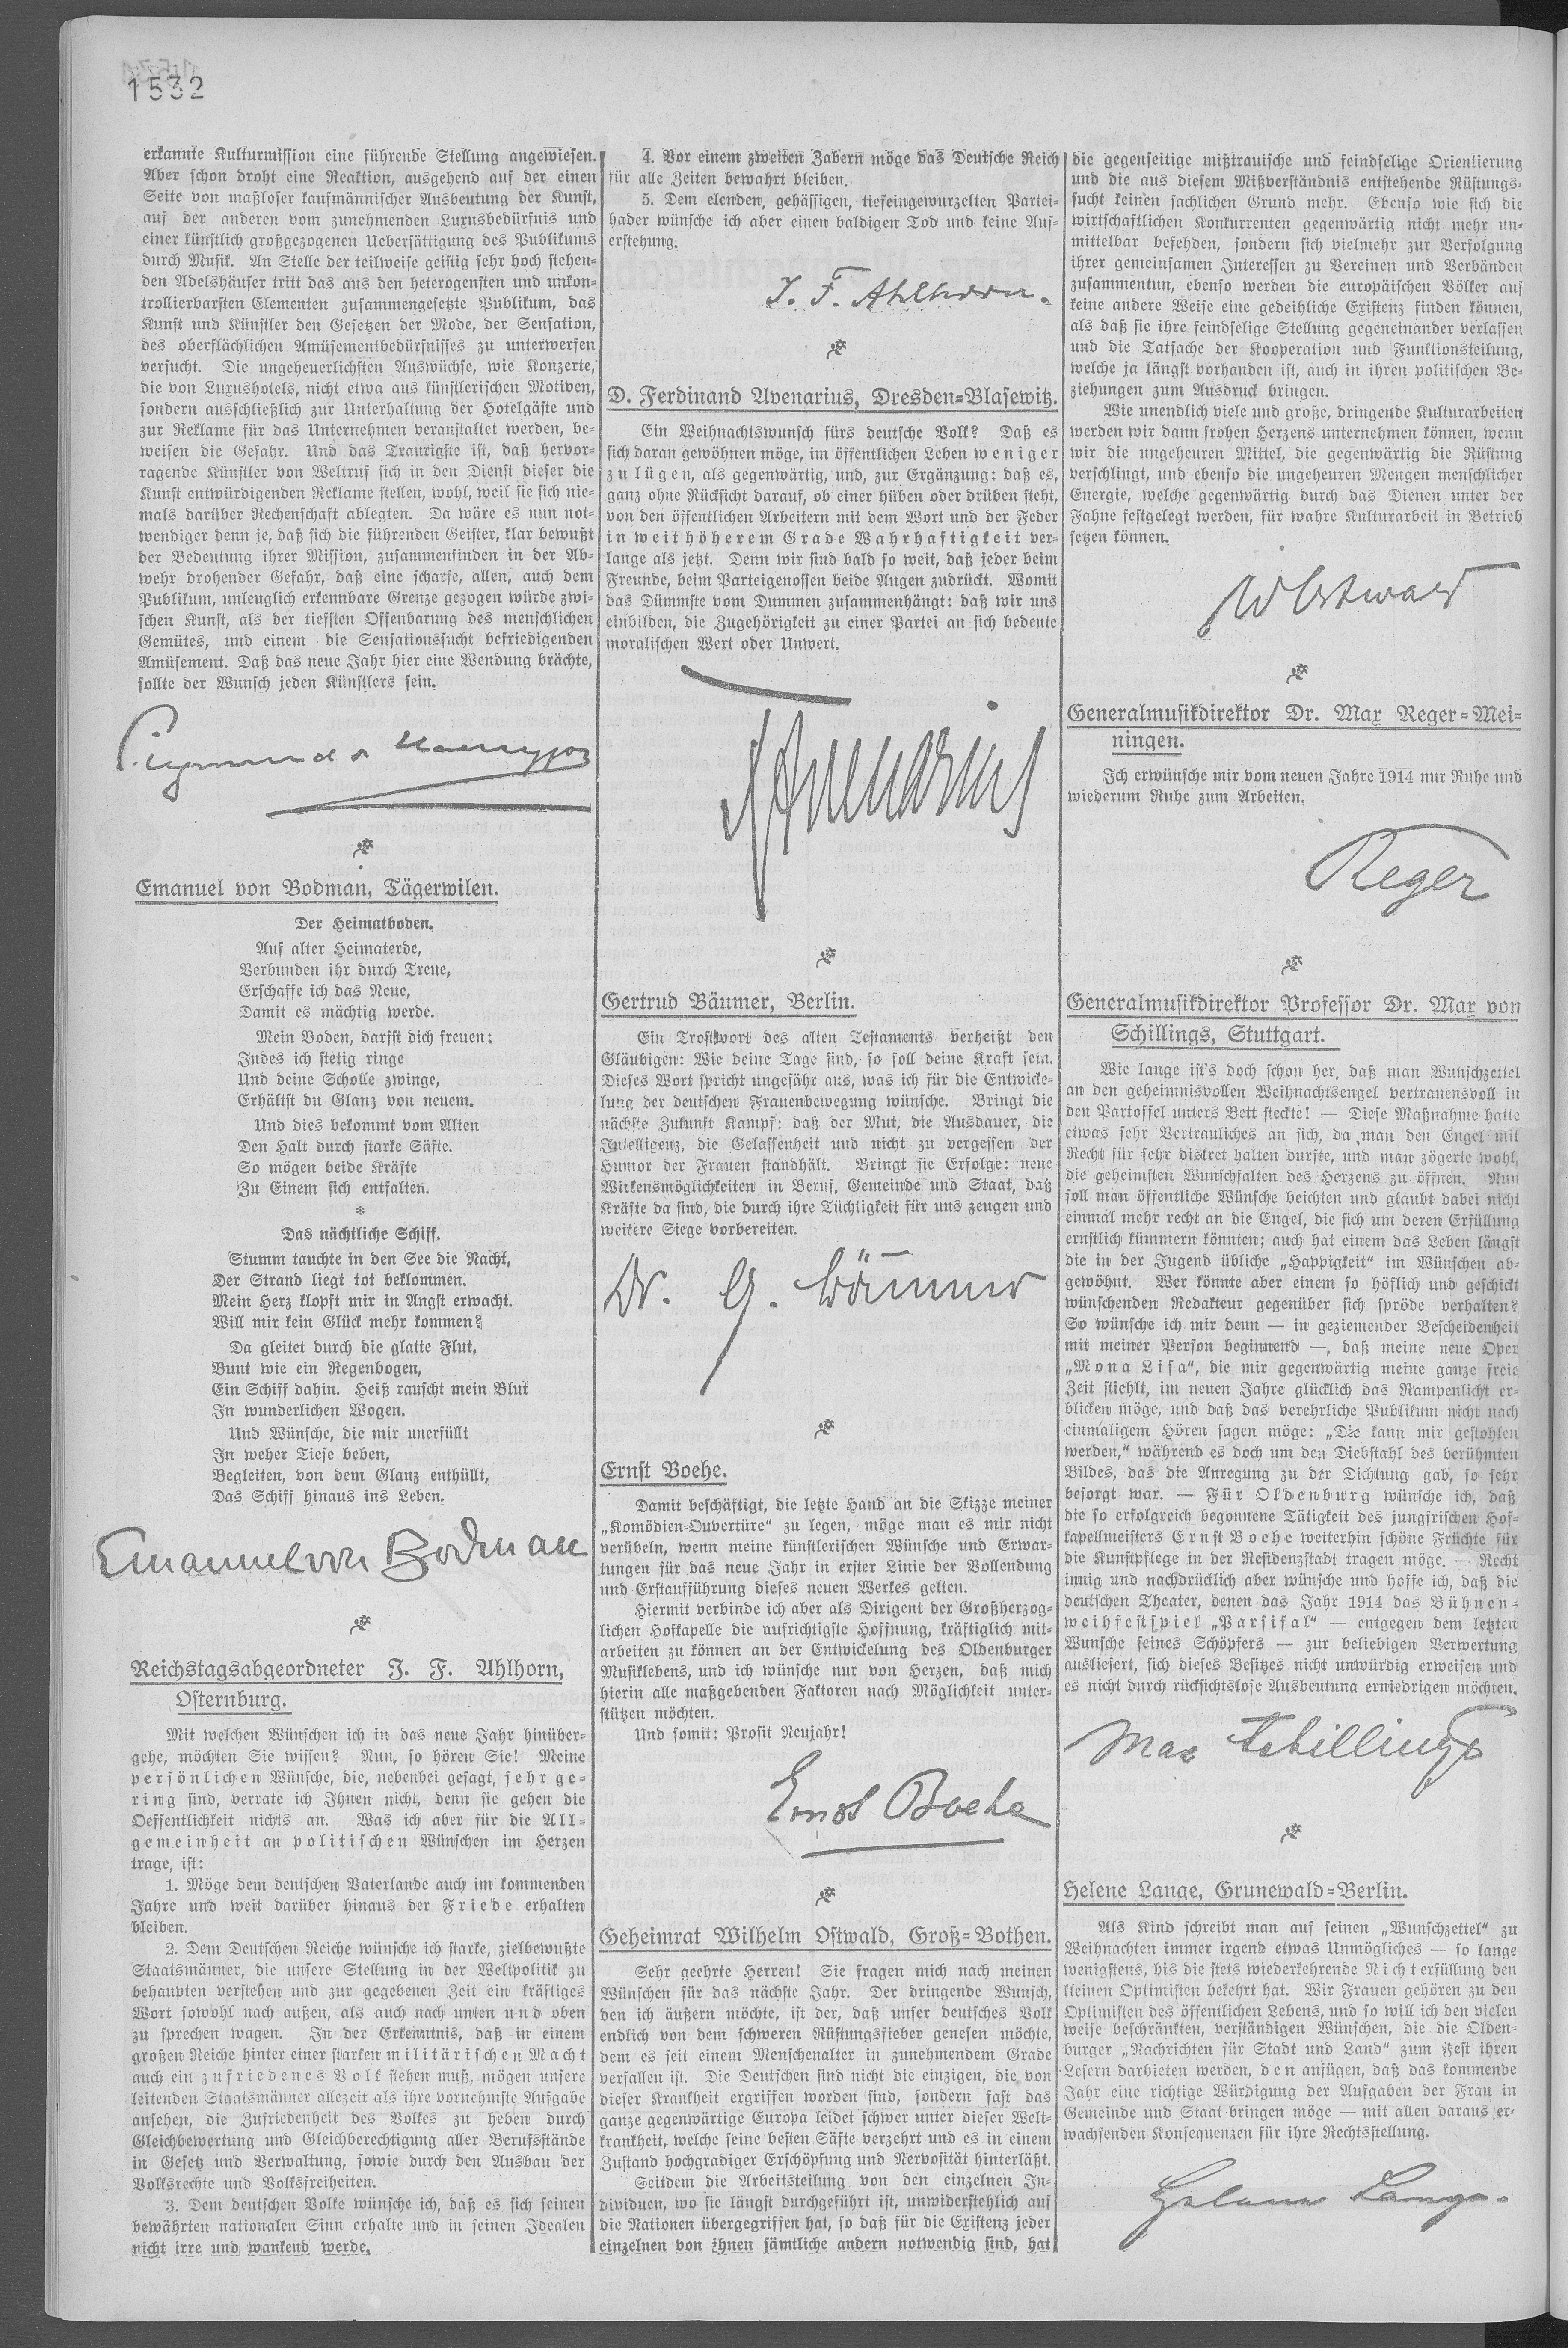 1532
erkannte Kulturmission eine führende Stellung angewiesen.
Aber schon droht eine Reaktion, ausgehend auf der einen
Seite von maßloser kaufmännischer Ausbeutung der Kunst,
auf der anderen vom zunehmenden Luxusbedürfnis und
einer künstlich großgezogenen Uebersättigung des Publikums
durch Musik. An Stelle der teilweise geistig sehr hoch stehen-
den Adelshäuser tritt das aus den heterogensten und unkon-
trollierbarsten Elementen zusammengesetzte Publikum, das
Kunst und Künstler den Gesetzen der Mode, der Sensation,
des oberflächlichen Amüsementbedürfnisses zu unterwerfen
versucht. Die ungeheuerlichsten Auswüchse, wie Konzerte,
die von Luxushotels, nicht etwa aus künstlerischen Motiven,
sondern ausschließlich zur Unterhaltung der Hotelgäste und
zur Reklame für das Unternehmen veranstaltet werden, be-
weisen die Gefahr. Und das Traurigste ist, daß hervor-
ragende Künstler von Weltruf sich in den Dienst dieser die
Kunst entwürdigenden Reklame stellen, wohl, weil sie sich nie-
mals darüber Rechenschaft ablegten. Da wäre es nun not-
wendiger denn je, daß sich die führenden Geister, klar bewußt
der Bedeutung ihrer Mission, zusammenfinden in der Ab-
wehr drohender Gefahr, daß eine scharfe, allen, auch dem
Publikum, unleuglich erkennbare Grenze gezogen würde zwi-
schen Kunst, als der tiefsten Offenbarung des menschlichen
Gemütes, und einem die Sensationssucht befriedigenden
Amüsement. Daß das neue Jahr hier eine Wendung brächte,
sollte der Wunsch jeden Künstlers sein.
Emanuel von Bodman, Tägerwilen.
Der Heimatboden.
Auf alter Heimaterde,
Verbunden ihr durch Treue,
Erschaffe ich das Neue,
Damit es mächtig werde.
Mein Boden, darfst dich freuen:
Indes ich stetig ringe
Und deine Scholle zwinge,
Erhältst du Glanz von neuem.
Und dies bekommt vom Alten
Den Halt durch starke Säfte.
So mögen beide Kräfte
Zu Einem sich entfalten.
*
Das nächtliche Schiff.
Stumm tauchte in den See die Nacht,
Der Strand liegt tot beklommen.
Mein Herz klopft mir in Angst erwacht.
Will mir kein Glück mehr kommen?
Da gleitet durch die glatte Flut,
Bunt wie ein Regenbogen,
Ein Schiff dahin. Heiß rauscht mein Blut
In wunderlichen Wogen.
Und Wünsche, die mir unerfüllt
In weher Tiefe beben,
Begleiten, von dem Glanz enthüllt,
Das Schiff hinaus ins Leben.
Emanuel von Bodman
Reichstagsabgeordneter J. F. Ahlhorn,
Osternburg.
Mit welchen Wünschen ich in das neue Jahr hinüber-
gehe, möchten Sie wissen? Nun, so hören Sie! Meine
persönlichen Wünsche, die, nebenbei gesagt, sehr ge-
ring sind, verrate ich Ihnen nicht, denn sie gehen die
Oeffentlichkeit nichts an. Was ich aber für die All-
gemeinheit an politischen Wünschen im Herzen
trage, ist:
1. Möge dem deutschen Vaterlande auch im kommenden
Jahre und weit darüber hinaus der Friede erhalten
bleiben.
2. Dem Deutschen Reiche wünsche ich starke, zielbewußte
Staatsmänner, die unsere Stellung in der Weltpolitik zu
behaupten verstehen und zur gegebenen Zeit ein kräftiges
Wort sowohl nach außen, als auch nach unten und oben
zu sprechen wagen. In der Erkenntnis, daß in einem
großen Reiche hinter einer starken militärischen Macht
auch ein zufriedenes Volk stehen muß, mögen unsere
leitenden Staatsmänner allezeit als ihre vornehmste Aufgabe
ansehen, die Zufriedenheit des Volkes zu heben durch
Gleichbewertung und Gleichberechtigung aller Berufsstände
in Gesetz und Verwaltung, sowie durch den Ausbau der
Volksrechte und Volksfreiheiten.
3. Dem deutschen Volke wünsche ich, daß es sich seinen
bewährten nationalen Sinn erhalte und in seinen Idealen
nicht irre und wankend werde.
4. Vor einem zweiten Zabern möge das Deutsche Reich
für alle Zeiten bewahrt bleiben.
5. Dem elenden, gehässigen, tiefeingewurzelten Partei-
hader wünsche ich aber einen baldigen Tod und keine Auf-
erstehung.
J. F. Ahlhorn.
D. Ferdinand Avenarius, Dresden-Blasewitz.
Ein Weihnachtswunsch fürs deutsche Volk? Daß es
sich daran gewöhnen möge, im öffentlichen Leben weniger
zu lügen, als gegenwärtig, und, zur Ergänzung: daß es,
ganz ohne Rücksicht darauf, ob einer hüben oder drüben steht,
von den öffentlichen Arbeitern mit dem Wort und der Feder
in weit höherem Grade Wahrhaftigkeit ver-
lange als jetzt. Denn wir sind bald so weit, daß jeder beim
Freunde, beim Parteigenossen beide Augen zudrückt. Womit
das Dümmste vom Dummen zusammenhängt: daß wir uns
einbilden, die Zugehörigkeit zu einer Partei an sich bedeute
moralischen Wert oder Unwert.
FAvenarius
Gertrud Bäumer, Berlin.
Ein Trostwort des alten Testaments verheißt den
Gläubigen: Wie deine Tage sind, so soll deine Kraft sein.
Dieses Wort spricht ungefähr aus, was ich für die Entwicke-
lung der deutschen Frauenbewegung wünsche. Bringt die
nächste Zukunft Kampf: daß der Mut, die Ausdauer, die
Intelligenz, die Gelassenheit und nicht zu vergessen der
Humor der Frauen standhält. Bringt sie Erfolge: neue
Wirkensmöglichkeiten in Beruf, Gemeinde und Staat, daß
Kräfte da sind, die durch ihre Tüchtigkeit für uns zeugen und
weitere Siege vorbereiten.
Dr. G. Bäumer
Ernst Boehe.
Damit beschäftigt, die letzte Hand an die Skizze meiner
„Komödien-Ouvertüre“ zu legen, möge man es mir nicht
verübeln, wenn meine künstlerischen Wünsche und Erwar-
tungen für das neue Jahr in erster Linie der Vollendung
und Erstaufführung dieses neuen Werkes gelten.
Hiermit verbinde ich aber als Dirigent der Großherzog-
lichen Hofkapelle die aufrichtigste Hoffnung, kräftiglich mit-
arbeiten zu können an der Entwickelung des Oldenburger
Musiklebens, und ich wünsche nur von Herzen, daß mich
hierin alle maßgebenden Faktoren nach Möglichkeit unter-
stützen möchten.
Und somit: Prosit Neujahr!
Ernst Boehe
Geheimrat Wilhelm Ostwald, Groß-Bothen.
Sehr geehrte Herren! Sie fragen mich nach meinen
Wünschen für das nächste Jahr. Der dringende Wunsch,
den ich äußern möchte, ist der, daß unser deutsches Volk
endlich von dem schweren Rüstungsfieber genesen möchte,
dem es seit einem Menschenalter in zunehmendem Grade
verfallen ist. Die Deutschen sind nicht die einzigen, die von
dieser Krankheit ergriffen worden sind, sondern fast das
ganze gegenwärtige Europa leidet schwer unter dieser Welt-
krankheit, welche seine besten Säfte verzehrt und es in einem
Zustand hochgradiger Erschöpfung und Nervosität hinterläßt.
Seitdem die Arbeitsteilung von den einzelnen In-
dividuen, wo sie längst durchgeführt ist, unwiderstehlich auf
die Nationen übergegriffen hat, so daß für die Existenz jeder
einzelnen von ihnen sämtliche andern notwendig sind, hat
die gegenseitige mißtrauische und feindselige Orientierung
und die aus diesem Mißverständnis entstehende Rüstungs-
sucht keinen sachlichen Grund mehr. Ebenso wie sich die
wirtschaftlichen Konkurrenten gegenwärtig nicht mehr un-
mittelbar befehden, sondern sich vielmehr zur Verfolgung
ihrer gemeinsamen Interessen zu Vereinen und Verbänden
zusammentun, ebenso werden die europäischen Völker auf
keine andere Weise eine gedeihliche Existenz finden können,
als daß sie ihre feindselige Stellung gegeneinander verlassen
und die Tatsache der Kooperation und Funktionsteilung,
welche ja längst vorhanden ist, auch in ihren politischen Be-
ziehungen zum Ausdruck bringen.
Wie unendlich viele und große, dringende Kulturarbeiten
werden wir dann frohen Herzens unternehmen können, wenn
wir die ungeheuren Mittel, die gegenwärtig die Rüstung
verschlingt, und ebenso die ungeheuren Mengen menschlicher
Energie, welche gegenwärtig durch das Dienen unter der
Fahne festgelegt werden, für wahre Kulturarbeit in Betrieb
setzen können.
W Ostwald
Generalmusikdirektor Dr. Max Reger-Mei-
ningen.
Ich erwünsche mir vom neuen Jahre 1914 nur Ruhe und
wiederum Ruhe zum Arbeiten.
Reger
Generalmusikdirektor Professor Dr. Max von
Schillings, Stuttgart.
Wie lange ist's doch schon her, daß man Wunschzettel
an den geheimnisvollen Weihnachtsengel vertrauensvoll in
den Partoffel unters Bett steckte! — Diese Maßnahme hatte
etwas sehr Vertrauliches an sich, da man den Engel mit
Recht für sehr diskret halten durfte, und man zögerte wohl,
die geheimsten Wunschfalten des Herzens zu öffnen. Nun
soll man öffentliche Wünsche beichten und glaubt dabei nicht
einmal mehr recht an die Engel, die sich um deren Erfüllung
ernstlich kümmern könnten; auch hat einem das Leben längst
die in der Jugend übliche „Happigkeit“ im Wünschen ab-
gewöhnt. Wer könnte aber einem so höflich und geschickt
wünschenden Redakteur gegenüber sich spröde verhalten?
So wünsche ich mir denn — in geziemender Bescheidenheit
mit meiner Person beginnend —, daß meine neue Oper
„Mona Lisa“, die mir gegenwärtig meine ganze freie
Zeit stiehlt, im neuen Jahre glücklich das Rampenlicht er-
blicken möge, und daß das verehrliche Publikum nicht nach
einmaligem Hören sagen möge: „Die kann mir gestohlen
werden,“ während es doch um den Diebstahl des berühmten
Bildes, das die Anregung zu der Dichtung gab, so sehr
besorgt war. — Für Oldenburg wünsche ich, daß
die so erfolgreich begonnene Tätigkeit des jungfrischen Hof-
kapellmeisters Ernst Boehe weiterhin schöne Früchte für
die Kunstpflege in der Residenzstadt tragen möge. — Recht
innig und nachdrücklich aber wünsche und hoffe ich, daß die
deutschen Theater, denen das Jahr 1914 das Bühnen-
weihfestspiel „Parsifal“ — entgegen dem letzten
Wunsche seines Schöpfers — zur beliebigen Verwertung
ausliefert, sich dieses Besitzes nicht unwürdig erweisen und
es nicht durch rücksichtslose Ausbeutung erniedrigen möchten.
Max Schillings
Helene Lange, Grunewald-Berlin.
Als Kind schreibt man auf seinen „Wunschzettel“ zu
Weihnachten immer irgend etwas Unmögliches — so lange
wenigstens, bis die stets wiederkehrende Nichterfüllung den
kleinen Optimisten bekehrt hat. Wir Frauen gehören zu den
Optimisten des öffentlichen Lebens, und so will ich den vielen
weise beschränkten, verständigen Wünschen, die die Olden-
burger „Nachrichten für Stadt und Land“ zum Fest ihren
Lesern darbieten werden, den anfügen, daß das kommende
Jahr eine richtige Würdigung der Aufgaben der Frau in
Gemeinde und Staat bringen möge — mit allen daraus er-
wachsenden Konsequenzen für ihre Rechtsstellung.
Helene Lange.